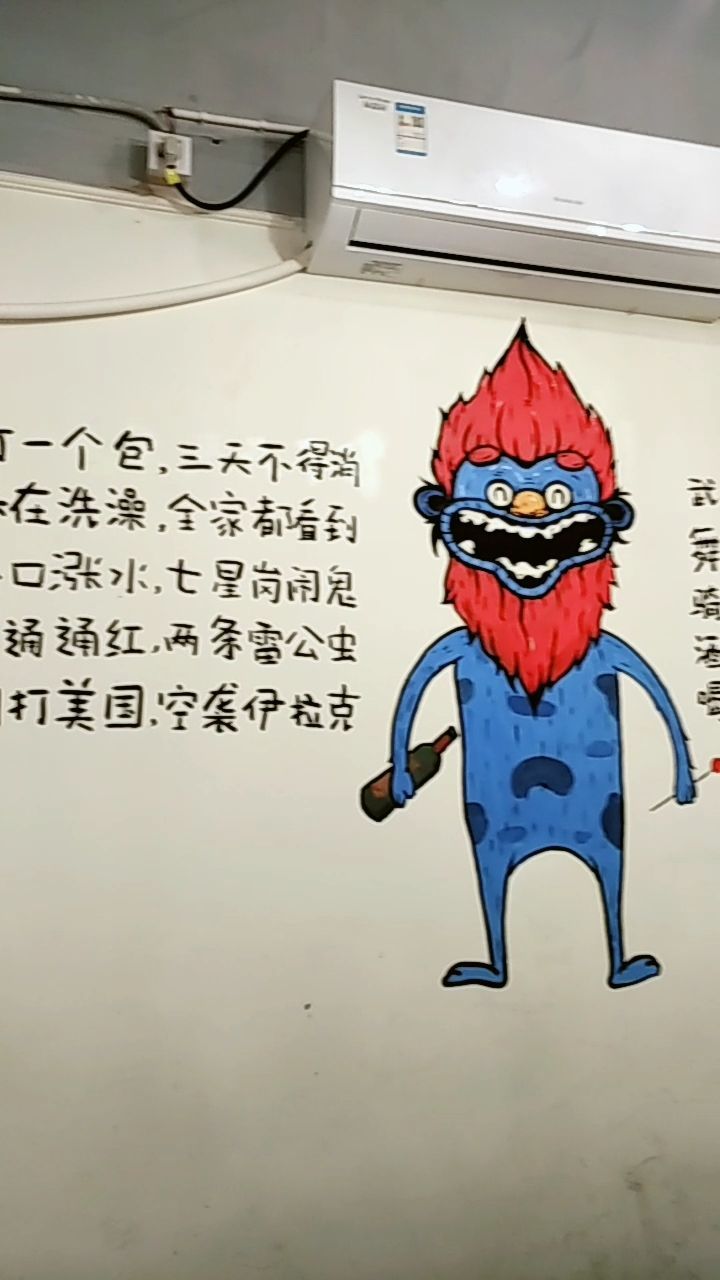 打一个包,三天不得消
在洗澡,全家都看到
口涨水,七星岗闹鬼
通通红,两条雷公虫
打美国,空袭伊拉克
武
舞
骑
酒
喝